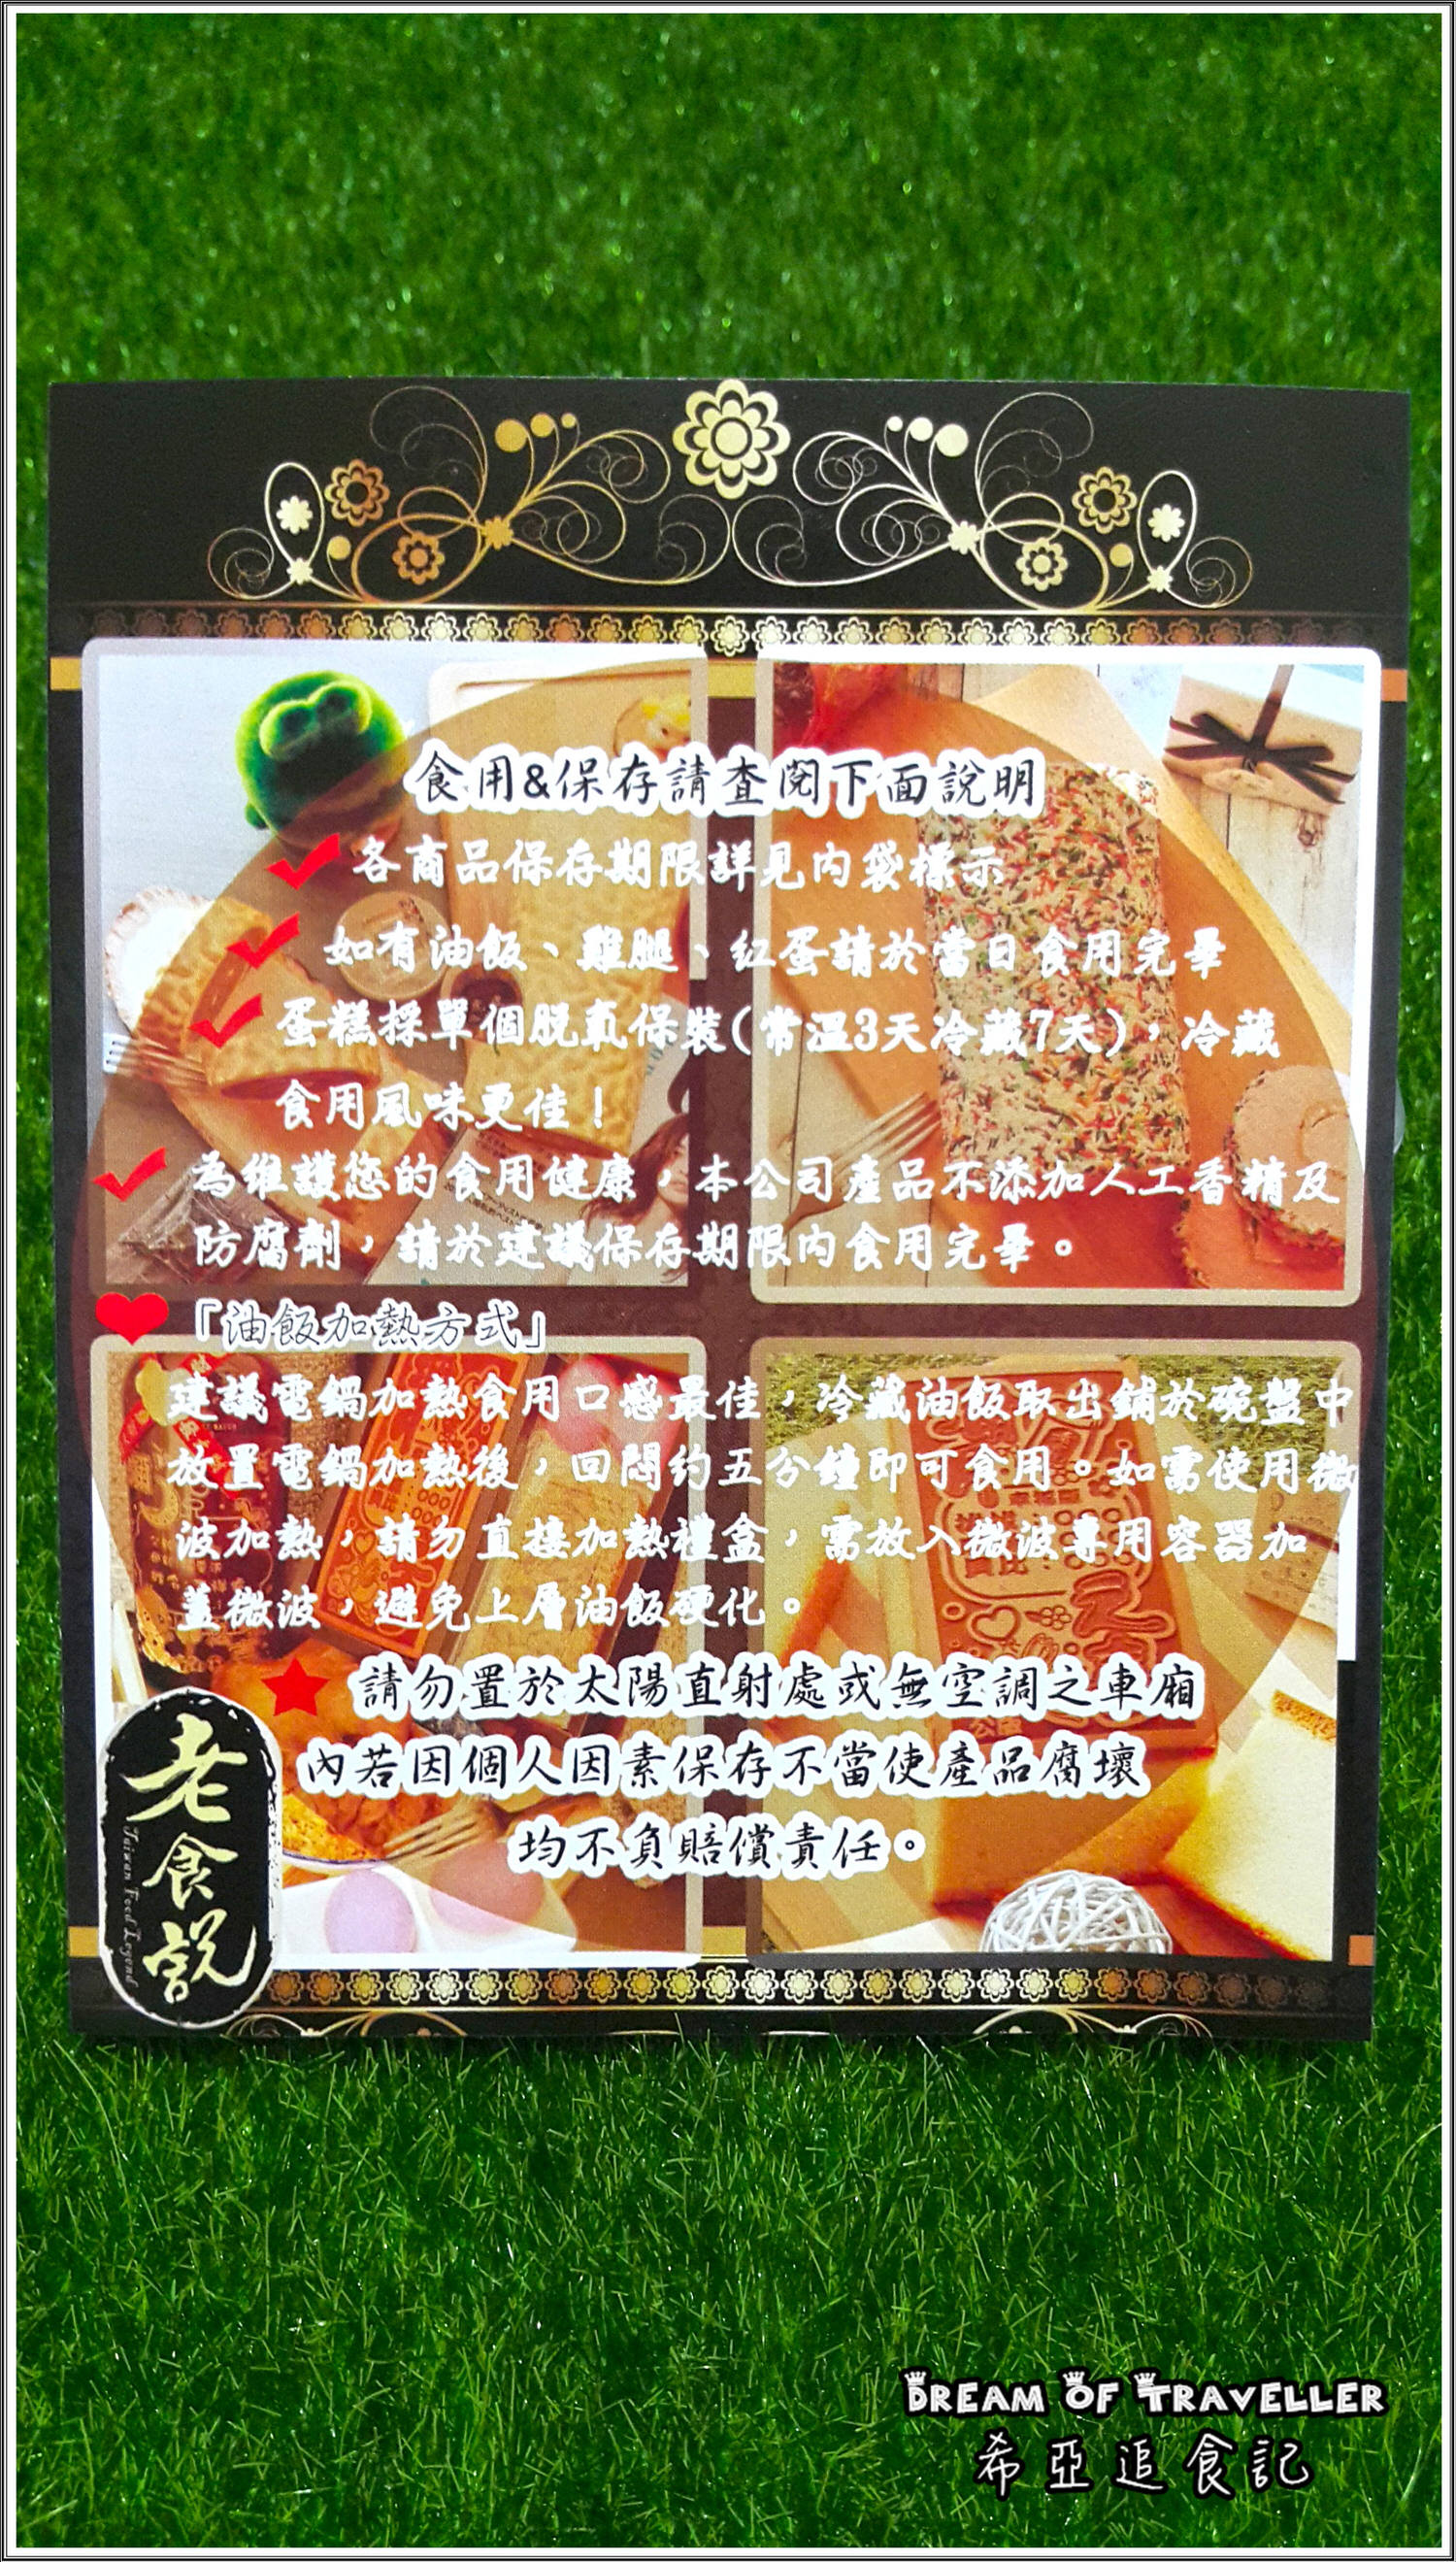 食用&保存請查閱下面說明
各商品保存期限詳見內袋標示
如有油飯、雞腿、紅蛋請於當日食用完畢
蛋糕採單個脫氧保裝(常溫3天冷藏7天)，冷藏
食用風味更佳！
為維護您的食用健康，本公司產品不添加人工香精及
防腐劑，請於建議保存期限內食用完畢。
「油飯加熱方式」
建議電鍋加熱食用口感最佳，冷藏油飯取出鋪於碗盤中
放置電鍋加熱後，回悶約五分鐘即可食用。如需使用微
波加熱，請勿直接加熱禮盒，需放入微波專用容器加
蓋微波，避免上層油飯硬化。
請勿置於太陽直射處或無空調之車廂
內若因個人因素保存不當使產品腐壞
均不負賠償責任。
老食說
Taiwan Food Legend
DREAM OF TRAVELLER
希亞追食記